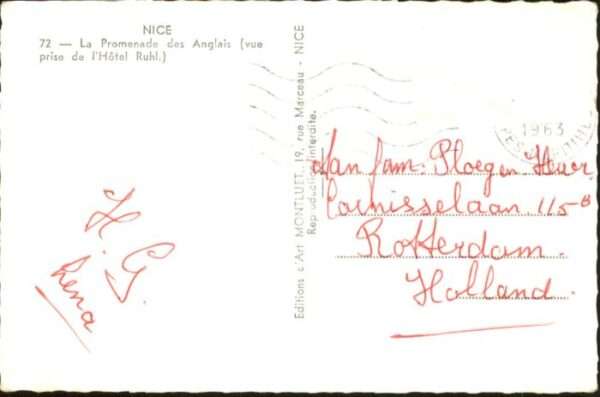 NICE
72 — La Promenade des Anglais (vue
prise de l'Hôtel Ruhl.)
Editions d'Art MONTLUET, 19, rue Marceau - NICE
Reproduction interdite.
1963
Aan fam. Ploeg en Heuer
115B
Rotterdam.
Holland.
H. G.
Rena